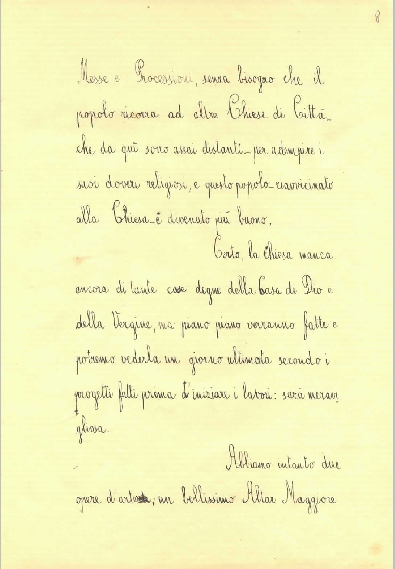 8
Messe e Processioni, senza bisogno che il
popolo ricorra ad altre Chiese di Città_
che da quì sono assai distanti_ per adempire i
suoi doveri religiosi, e questo popolo_riavvicinato
alla Chiesa_è divenuto più buono.
Certo, la Chiesa manca
ancora di tante cose degne della Casa di Dio e
della Vergine, ma piano piano verranno fatte e
potremo vederla un giorno ultimata secondo i
progetti fatti prima d'iniziare i lavori: sarà meravi
gliosa.
Abbiamo intanto due
opere d'arte, un bellissimo Altar Maggiore